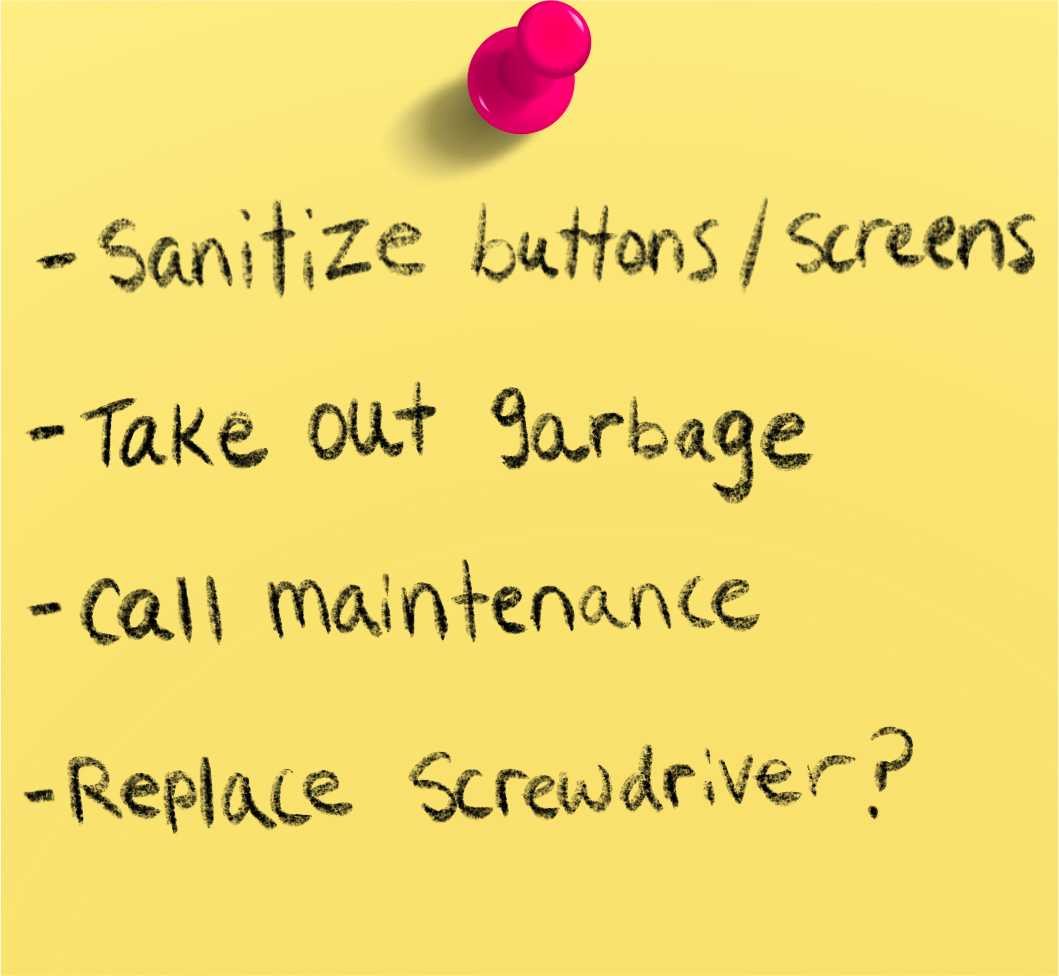 - Sanitize buttons/screens
- Take out garbage
- Call maintenance
- Replace screwdriver?